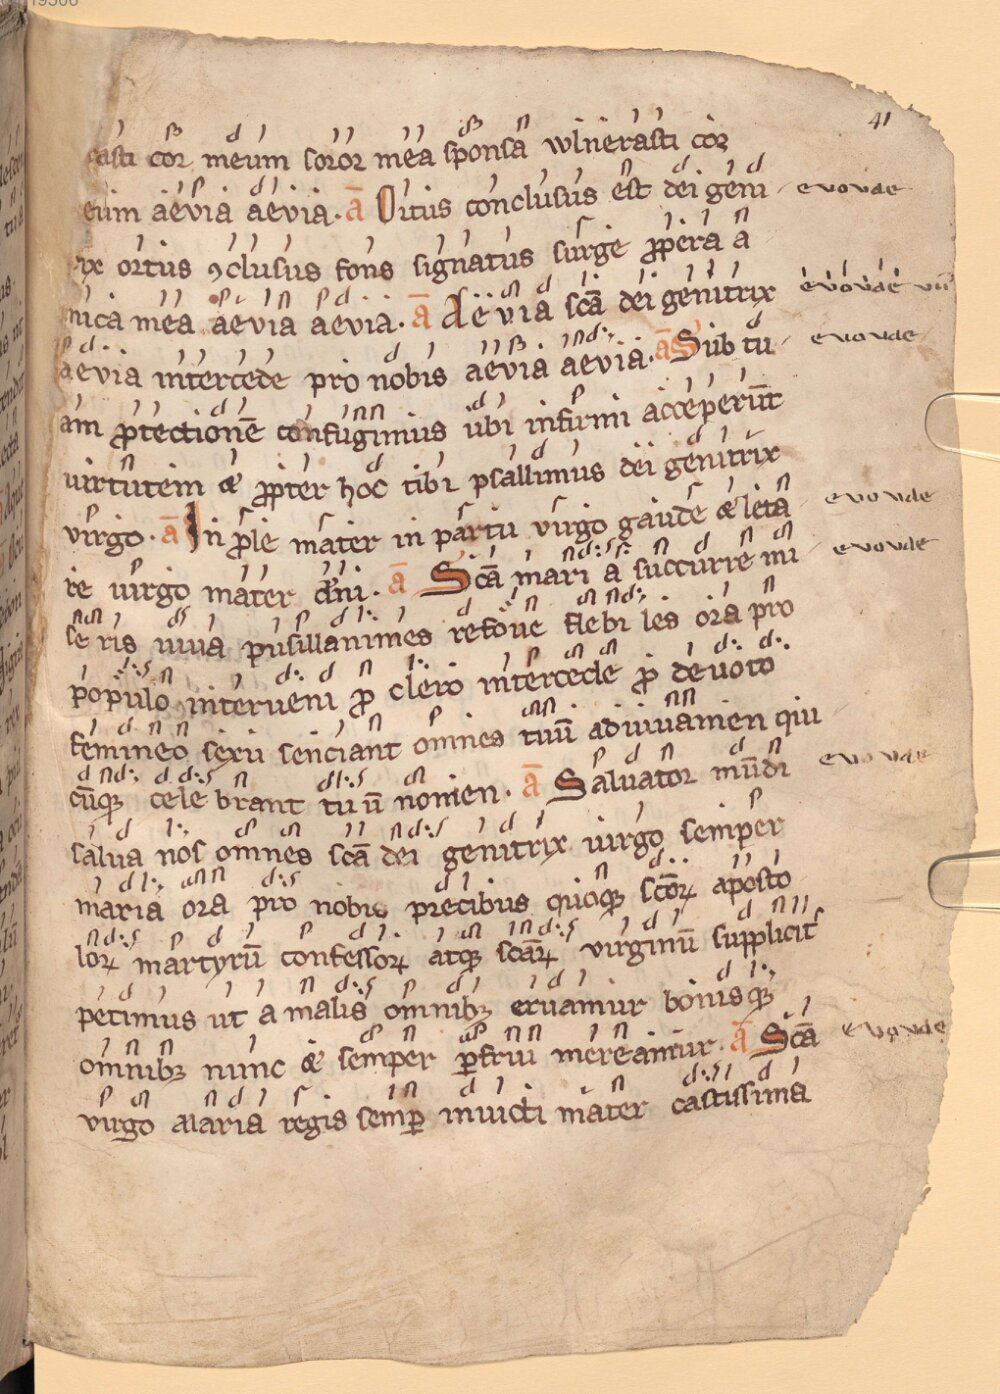 41
rasti cor meum soror mea sponsa wlnerasti cor
eum aevia aevia. ā Ortus conclusus est dei geni e v o v a e
rix ortus ꝯclusus fons signatus surge ꝓpera a
mica mea aevia aevia. ā Aevia scā dei genitrix e v o v a e
aevia intercede pro nobis aevia aevia. ā Sub tu e v o v a e
am ꝓtectionē confugimus ubi infirmi acceperūt
virtutem & ꝓpter hoc tibi psallimus dei genitrix
virgo. ā In ꝓle mater in partu virgo gaude & leta e v o v a e
re virgo mater dn̄i. ā Scā maria succurre mi e v o v a e
se ris iuva pusillanimes refove flebiles ora pro
populo interveni ꝓ clero intercede ꝓ devoto
femineo sexu senciant omnes tuū adiuvamen qui
cūqꝫ celebrant tuū nomen. ā Salvator mūdi e v o v a e
salva nos omnes scā dei genitrix virgo semper
maria ora pro nobis precibus quoqꝫ scōꝝ aposto
loꝝ martyrū confessoꝝ atqꝫ scāꝝ virginū suppliciť
petimus ut a malis omnibꝫ eruamur bonisqꝫ
omnibꝫ nunc & semper ꝑfrui mereamur. ā Scā e v o v a e
virgo maria regis semꝑ invicti mater castissima